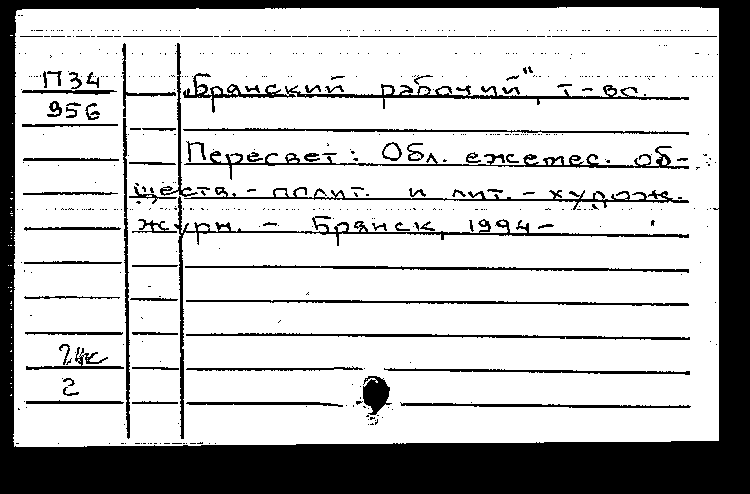 П34
956
„Брянский рабочий", т-во.
Пересвет: Обл. ежемес. об-
ществ.-полит. и лит.-худож.
журн. - Брянск, 1994-
2